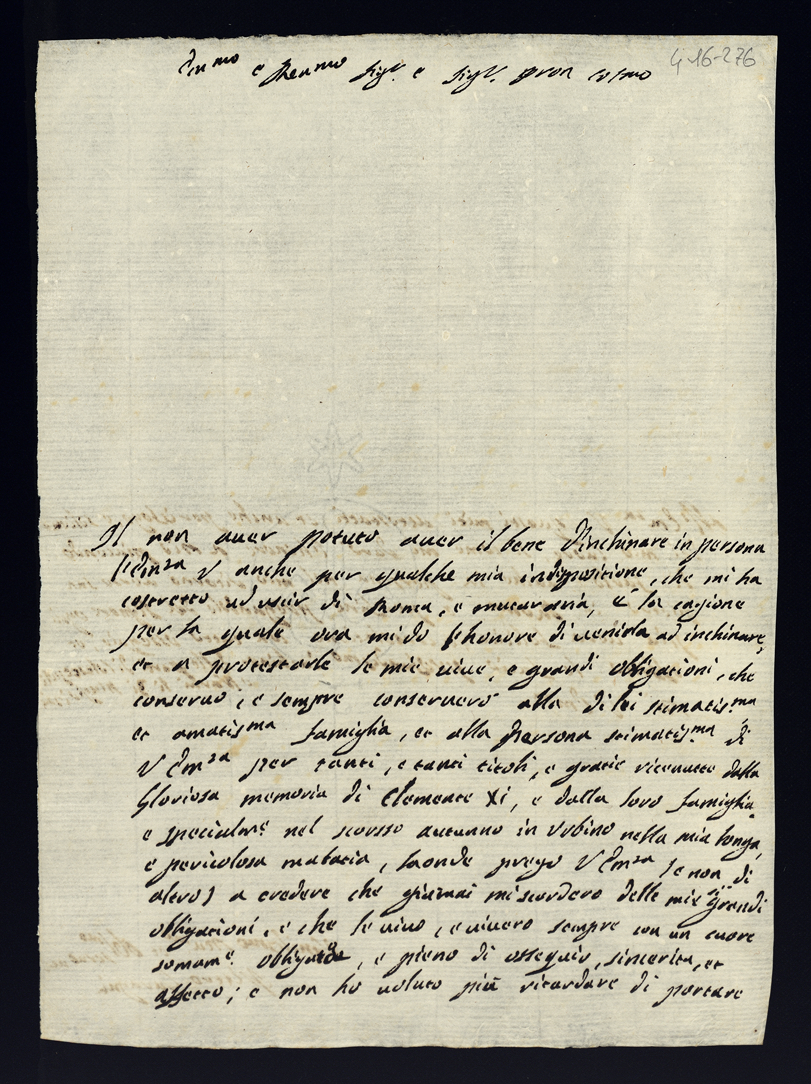 4-16-276
Em.mo e Reu.mo Sig.r e Sig.r pron colmo
Il non auer potuto auer il bene d'inchinare in persona
l'Em.za V anche per qualche mia indispositione, che mi ha
costretto ad uscir di Roma, e mutar aria, è la cagione
per la quale ora mi do l'honore di uenirla ad inchinare,
et a protestarle le mie uiue, e grandi obligationi, che
conseruo, e sempre conseruerò alla di lei stimatis.ma
et amatis.ma famiglia, et alla Persona stimatis.ma di
V Em.za per tanti, e tanti titoli, e gratie riceuute dalla
Gloriosa memoria di Clemente Xi, e dalla loro famiglia
e specialm.e nel scorso autunno in Vrbino nella mia longa,
e pericolosa malatia, laonde prego V Em.za (e non di
altro) a credere che giamai mi scorderò delle mie grandi
obligationi, e che le uiuo, e uiuerò sempre con un cuore
somam.e obligato, e pieno di ossequio, sincerità, et
affetto; e non ho uoluto più ritardare di portare